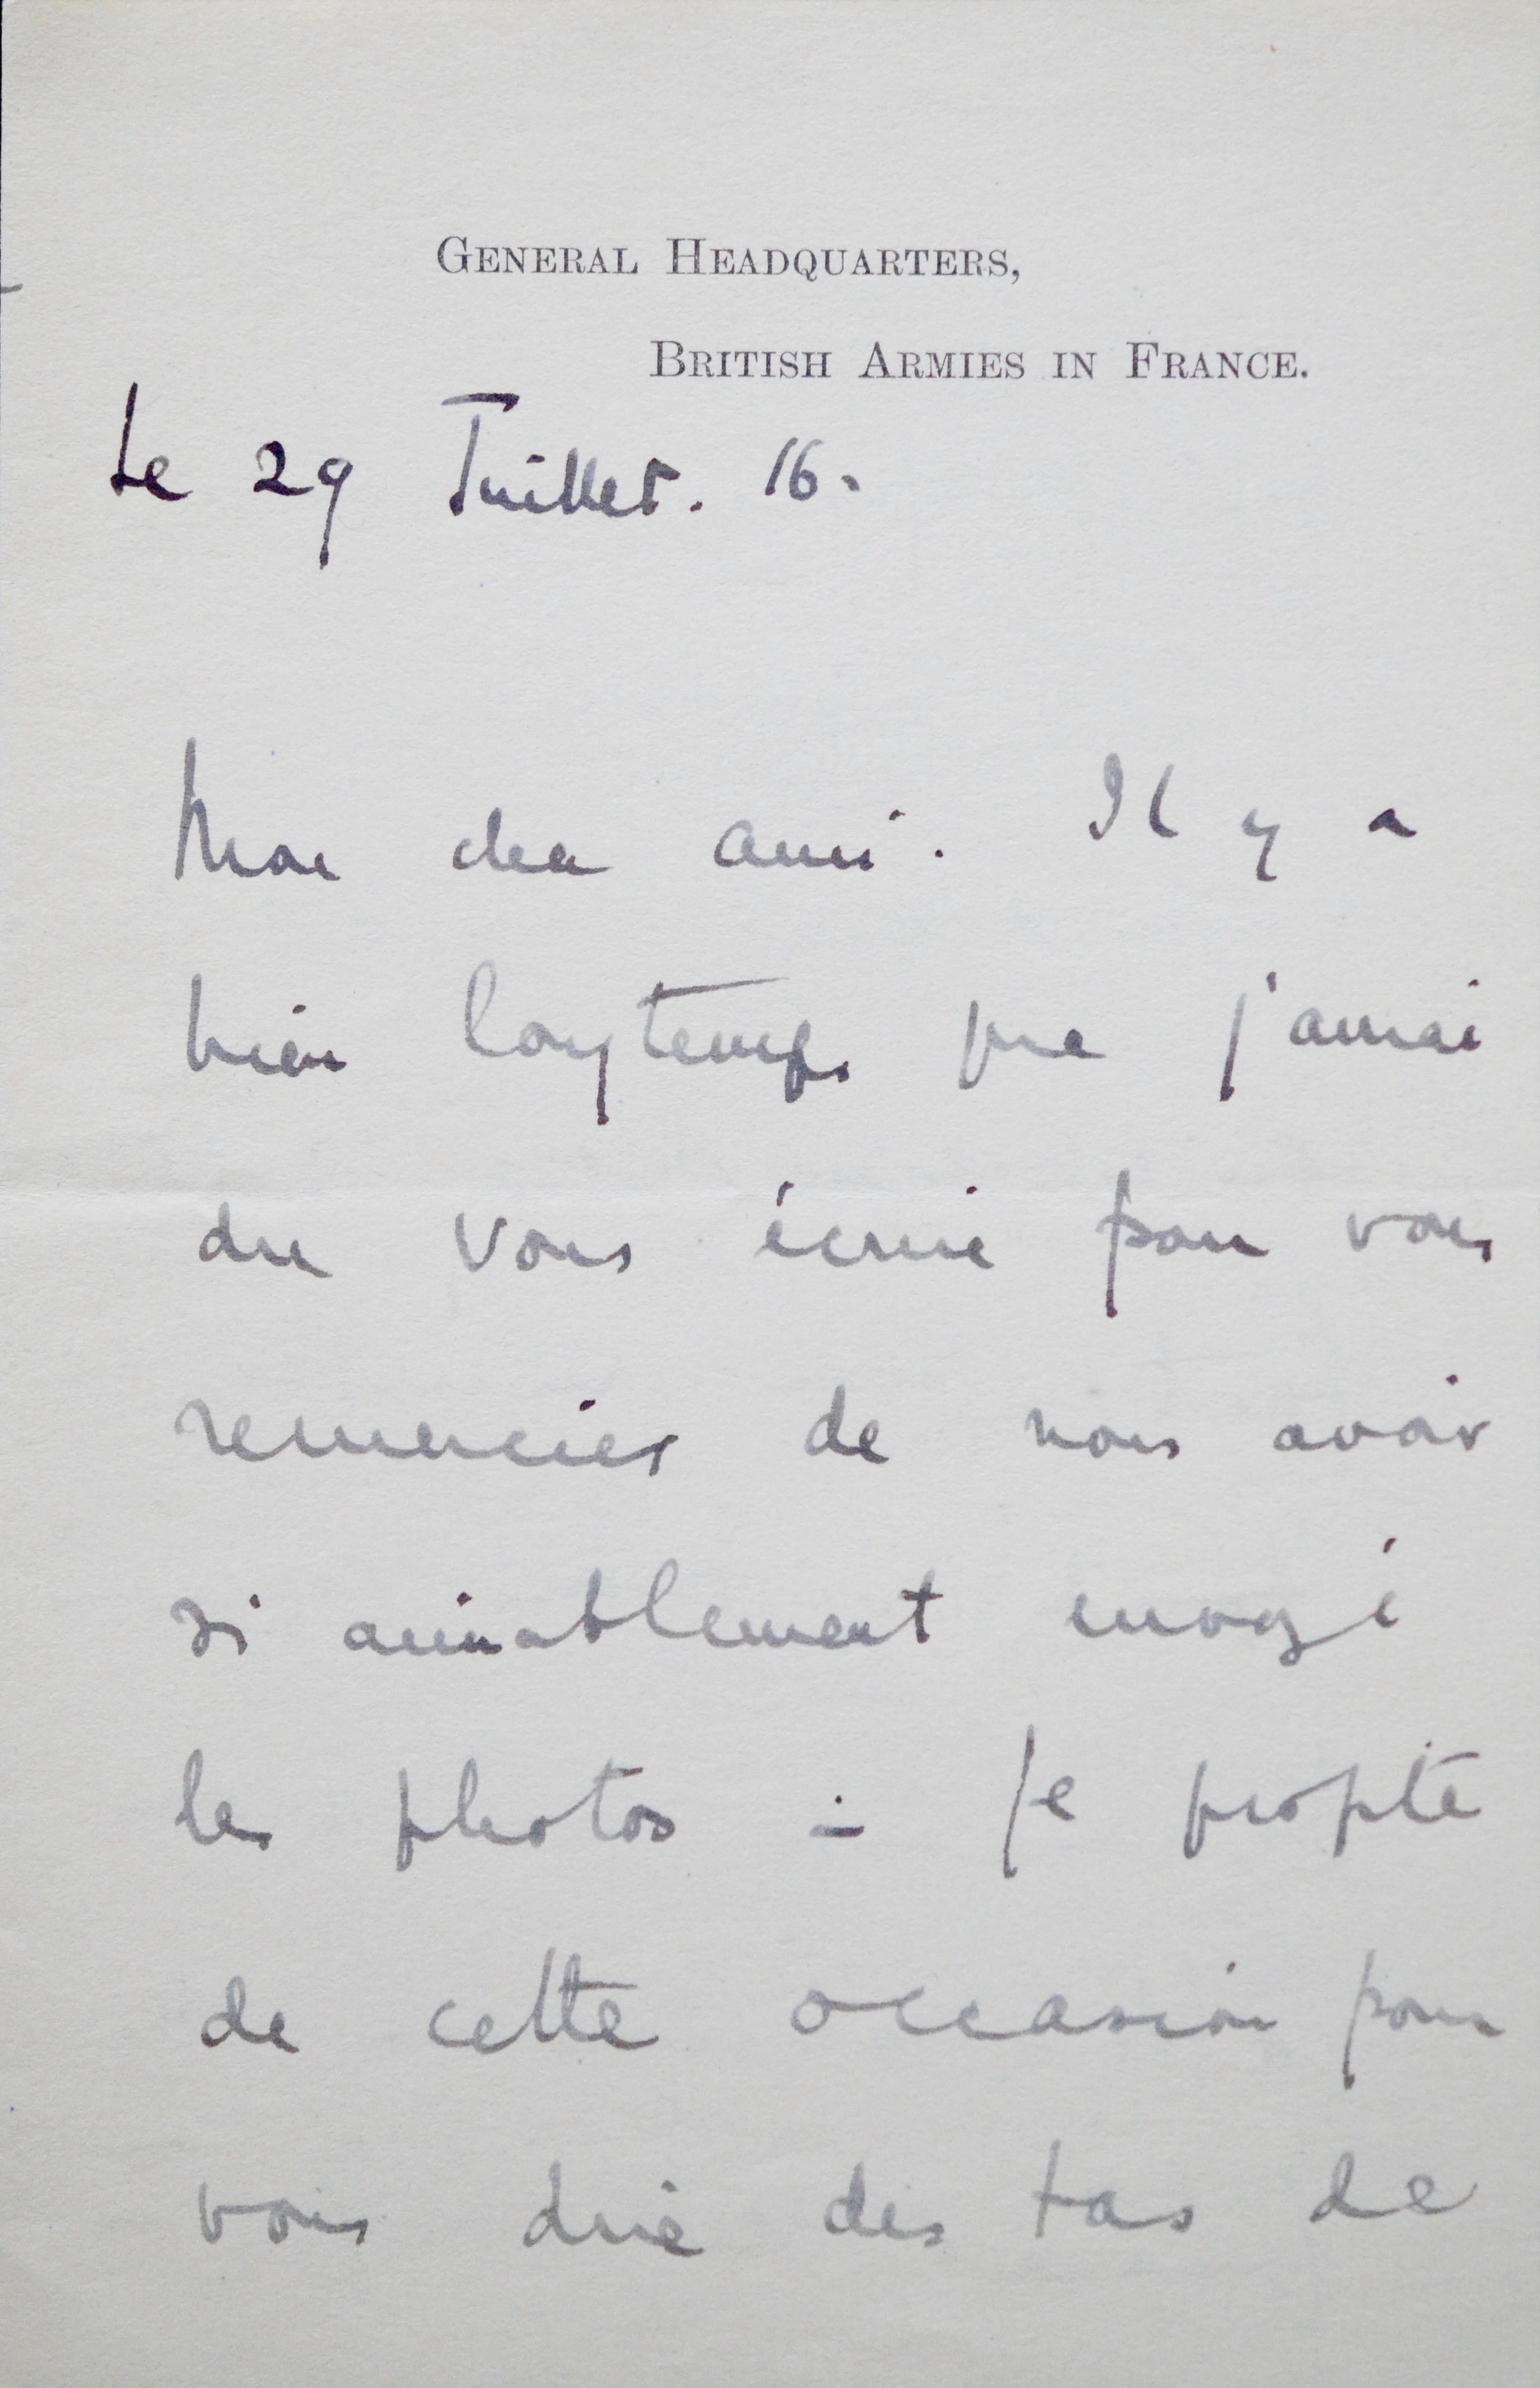 GENERAL HEADQUARTERS,
BRITISH ARMIES IN FRANCE.
Le 29 Juillet. 16.
Mon cher ami. Il y a
bien longtemps que j'aurai
du vous écrire pour vous
remercier de nous avoir
si aimablement envoyé
les photos - Je profite
de cette occasion pour
vous dire des tas de